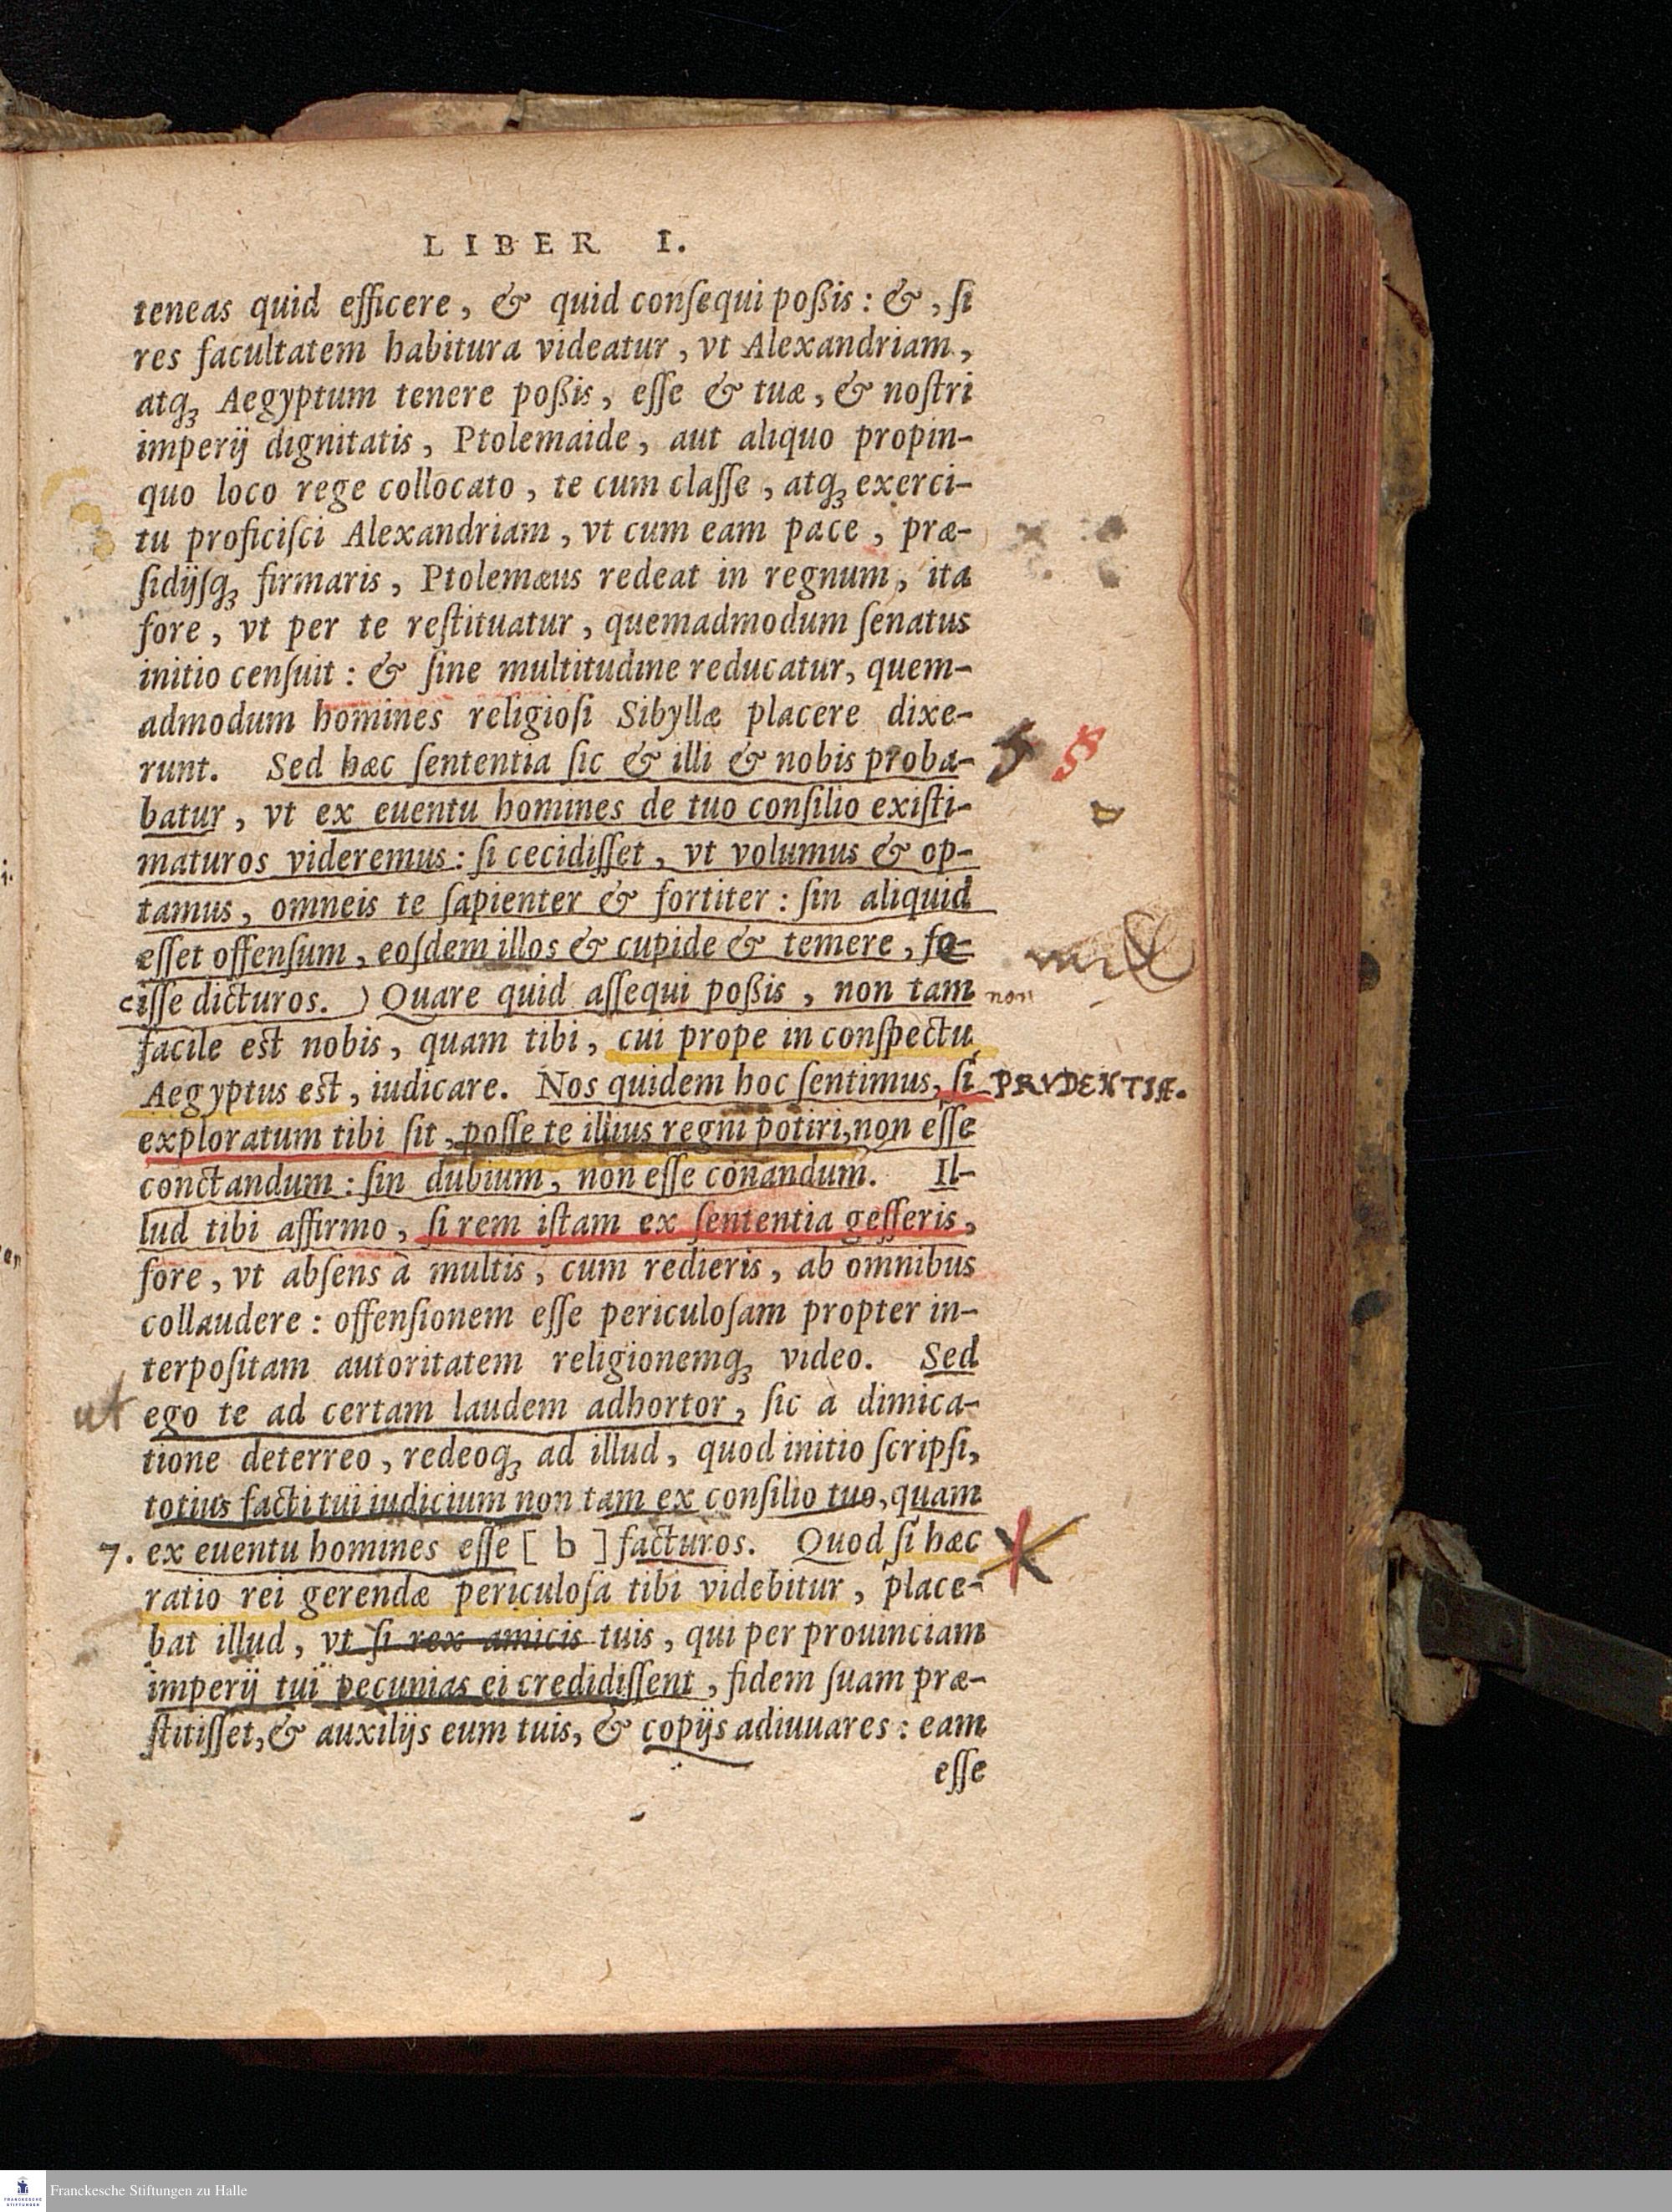 LIBER I.
teneas quid efficere, & quid conſequi poßis: &, ſi
res facultatem habitura videatur, vt Alexandriam,
atqꝫ Aegyptum tenere poßis, eſſe & tuæ, & noſtri
imperij dignitatis, Ptolemaide, aut aliquo propin-
quo loco rege collocato, te cum claſſe, atqꝫ exerci-
tu proficiſci Alexandriam, vt cum eam pace, præ-
ſidijſqꝫ firmaris, Ptolemæus redeat in regnum, ita
fore, vt per te reſtituatur, quemadmodum ſenatus
initio cenſuit: & ſine multitudine reducatur, quem-
admodum homines religioſi Sibyllæ placere dixe-
runt. Sed hæc ſententia ſic & illi & nobis proba-
batur, vt ex euentu homines de tuo conſilio exiſti-
maturos videremus: ſi cecidiſſet, vt volumus & op-
tamus, omneis te ſapienter & fortiter: ſin aliquid
eſſet offenſum, eoſdem illos & cupide & temere, fe-
ciſſe dicturos. ) Quare quid aſſequi poßis, non tam non
facile est nobis, quam tibi, cui prope in conſpectu
Aegyptus est, iudicare. Nos quidem hoc ſentimus, ſi PRVDENTIÆ.
exploratum tibi ſit, poſſe te illius regni potiri, non eſſe
conctandum: ſin dubium, non eſſe conandum. Il-
lud tibi affirmo, ſi rem iſtam ex ſententia geſſeris,
fore, vt abſens à multis, cum redieris, ab omnibus
collaudere: offenſionem eſſe periculoſam propter in-
terpoſitam autoritatem religionemqꝫ video. Sed
ut ego te ad certam laudem adhortor, ſic à dimica-
tione deterreo, redeoqꝫ ad illud, quod initio ſcripſi,
totius facti tui iudicium non tam ex conſilio tuo, quam
7. ex euentu homines eſſe [ b ] facturos. Quod ſi hæc
ratio rei gerendæ periculoſa tibi videbitur, place-
bat illud, vt ſi rex amicis tuis, qui per prouinciam
imperij tui pecunias ei credidiſſent, fidem ſuam præ-
ſtitiſſet, & auxilijs eum tuis, & copijs adiuuares: eam
eſſe
Franckesche Stiftungen zu Halle